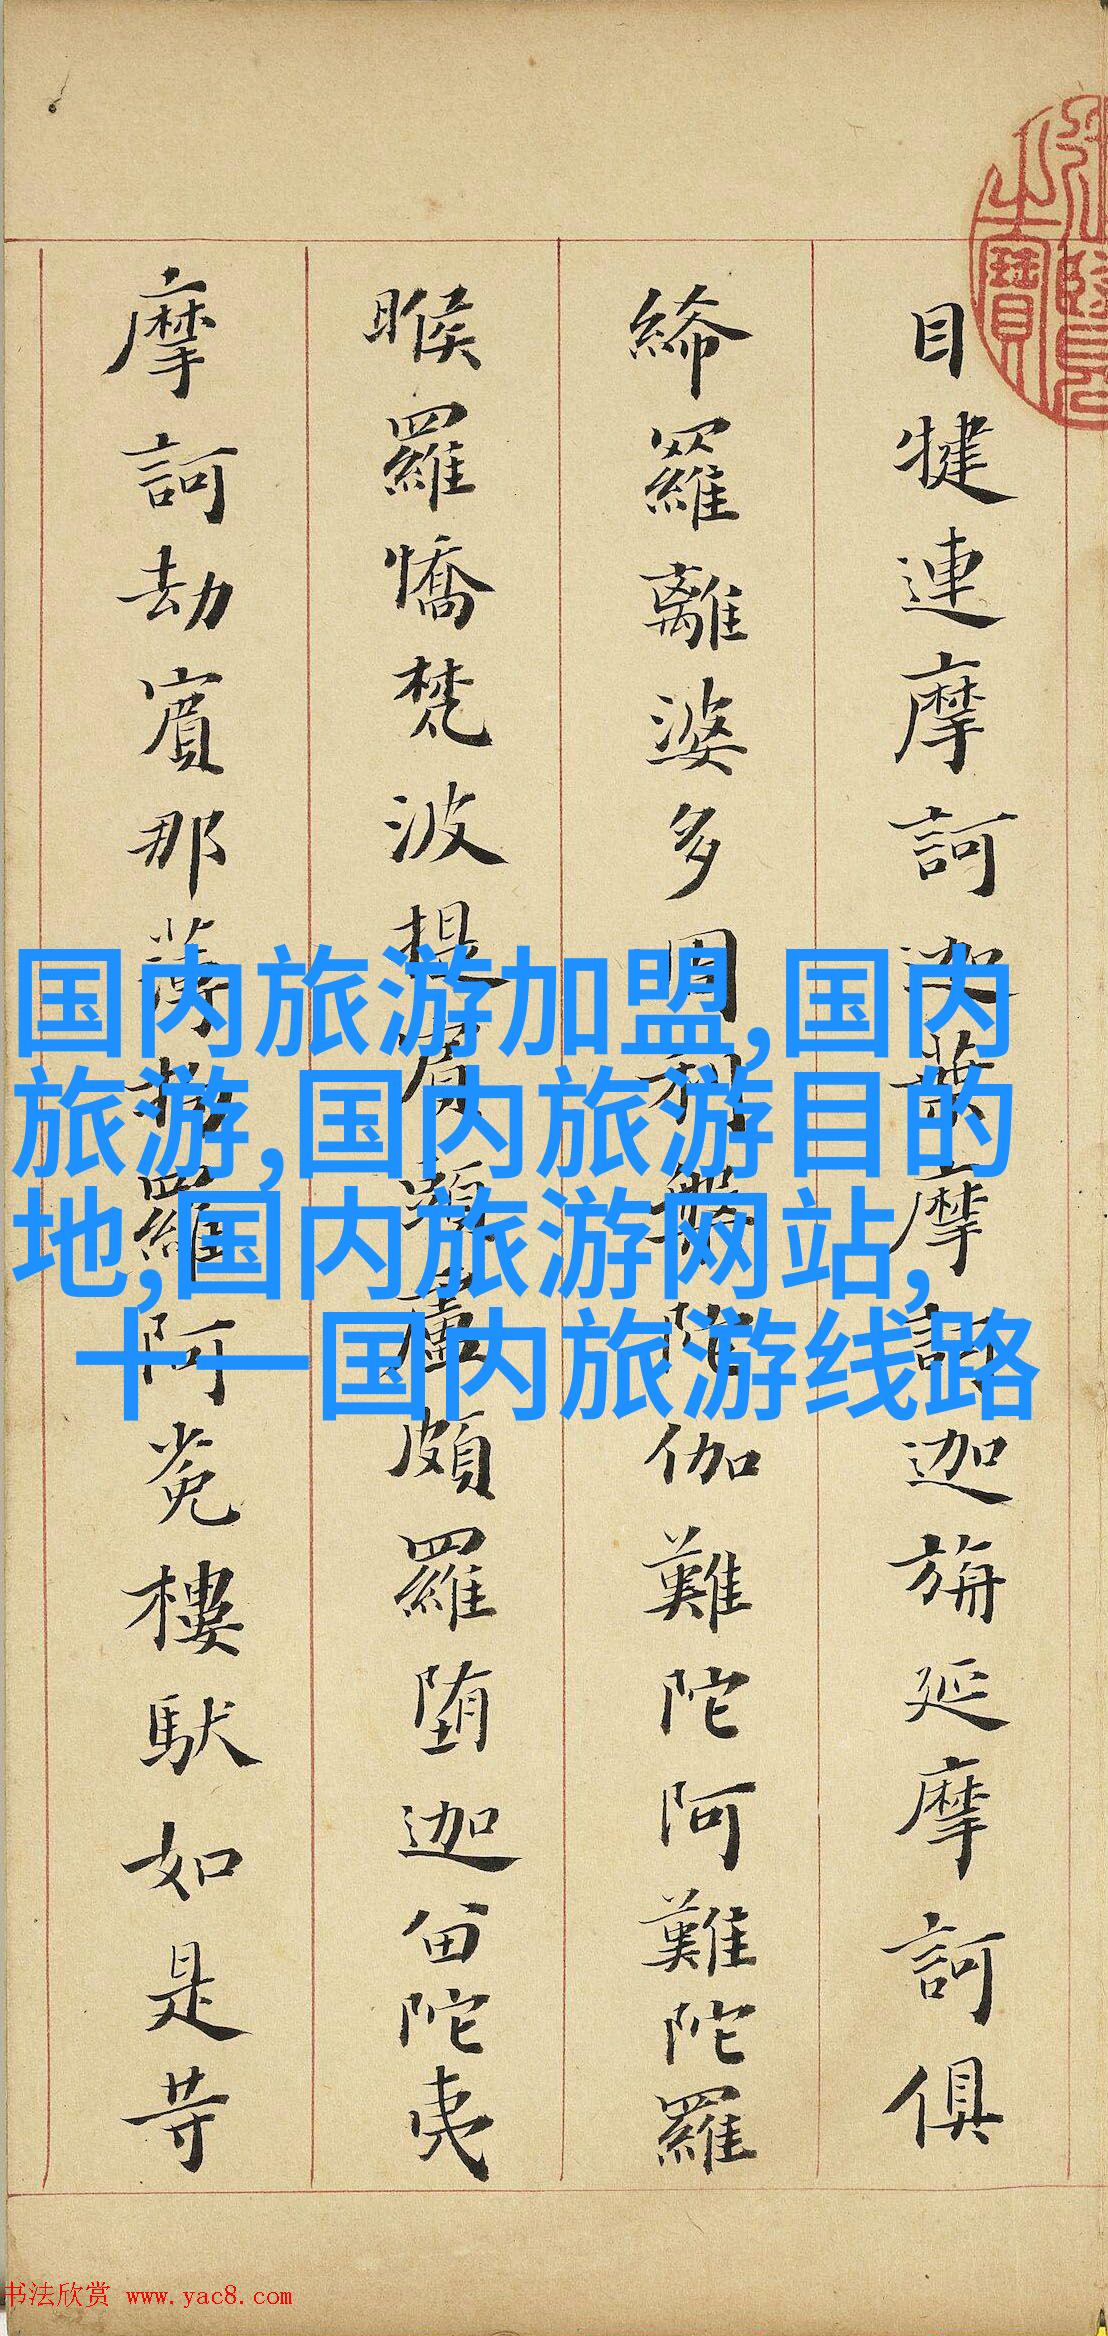 目犍連摩訶迦葉摩訶迦旃延摩訶俱
絺羅離婆多周利槃陀伽難陀阿難陀羅
睺羅憍梵波提賓頭盧頗羅堕迦留陀夷
摩訶劫賓那薄拘羅阿㝹樓馱如是等
国内旅游加盟,国内
旅游,国内旅游目的
地,国内旅游网站,
十一国内旅游线路
书法欣赏 www.yac8.com